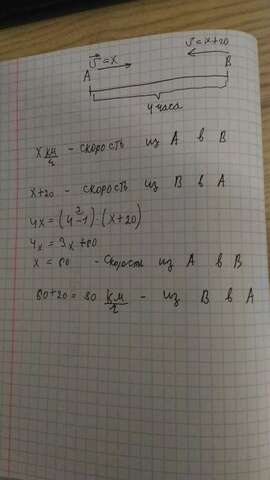 v⃗=x v=x+20
A B
4 часа
x км/ч - скорость из A в B
x+20 - скорость из B в A
4x=(4-1)·(x+20)
4x = 3x+60
x = 60 - скорость из A в B
60+20=80 км/ч - из B в A